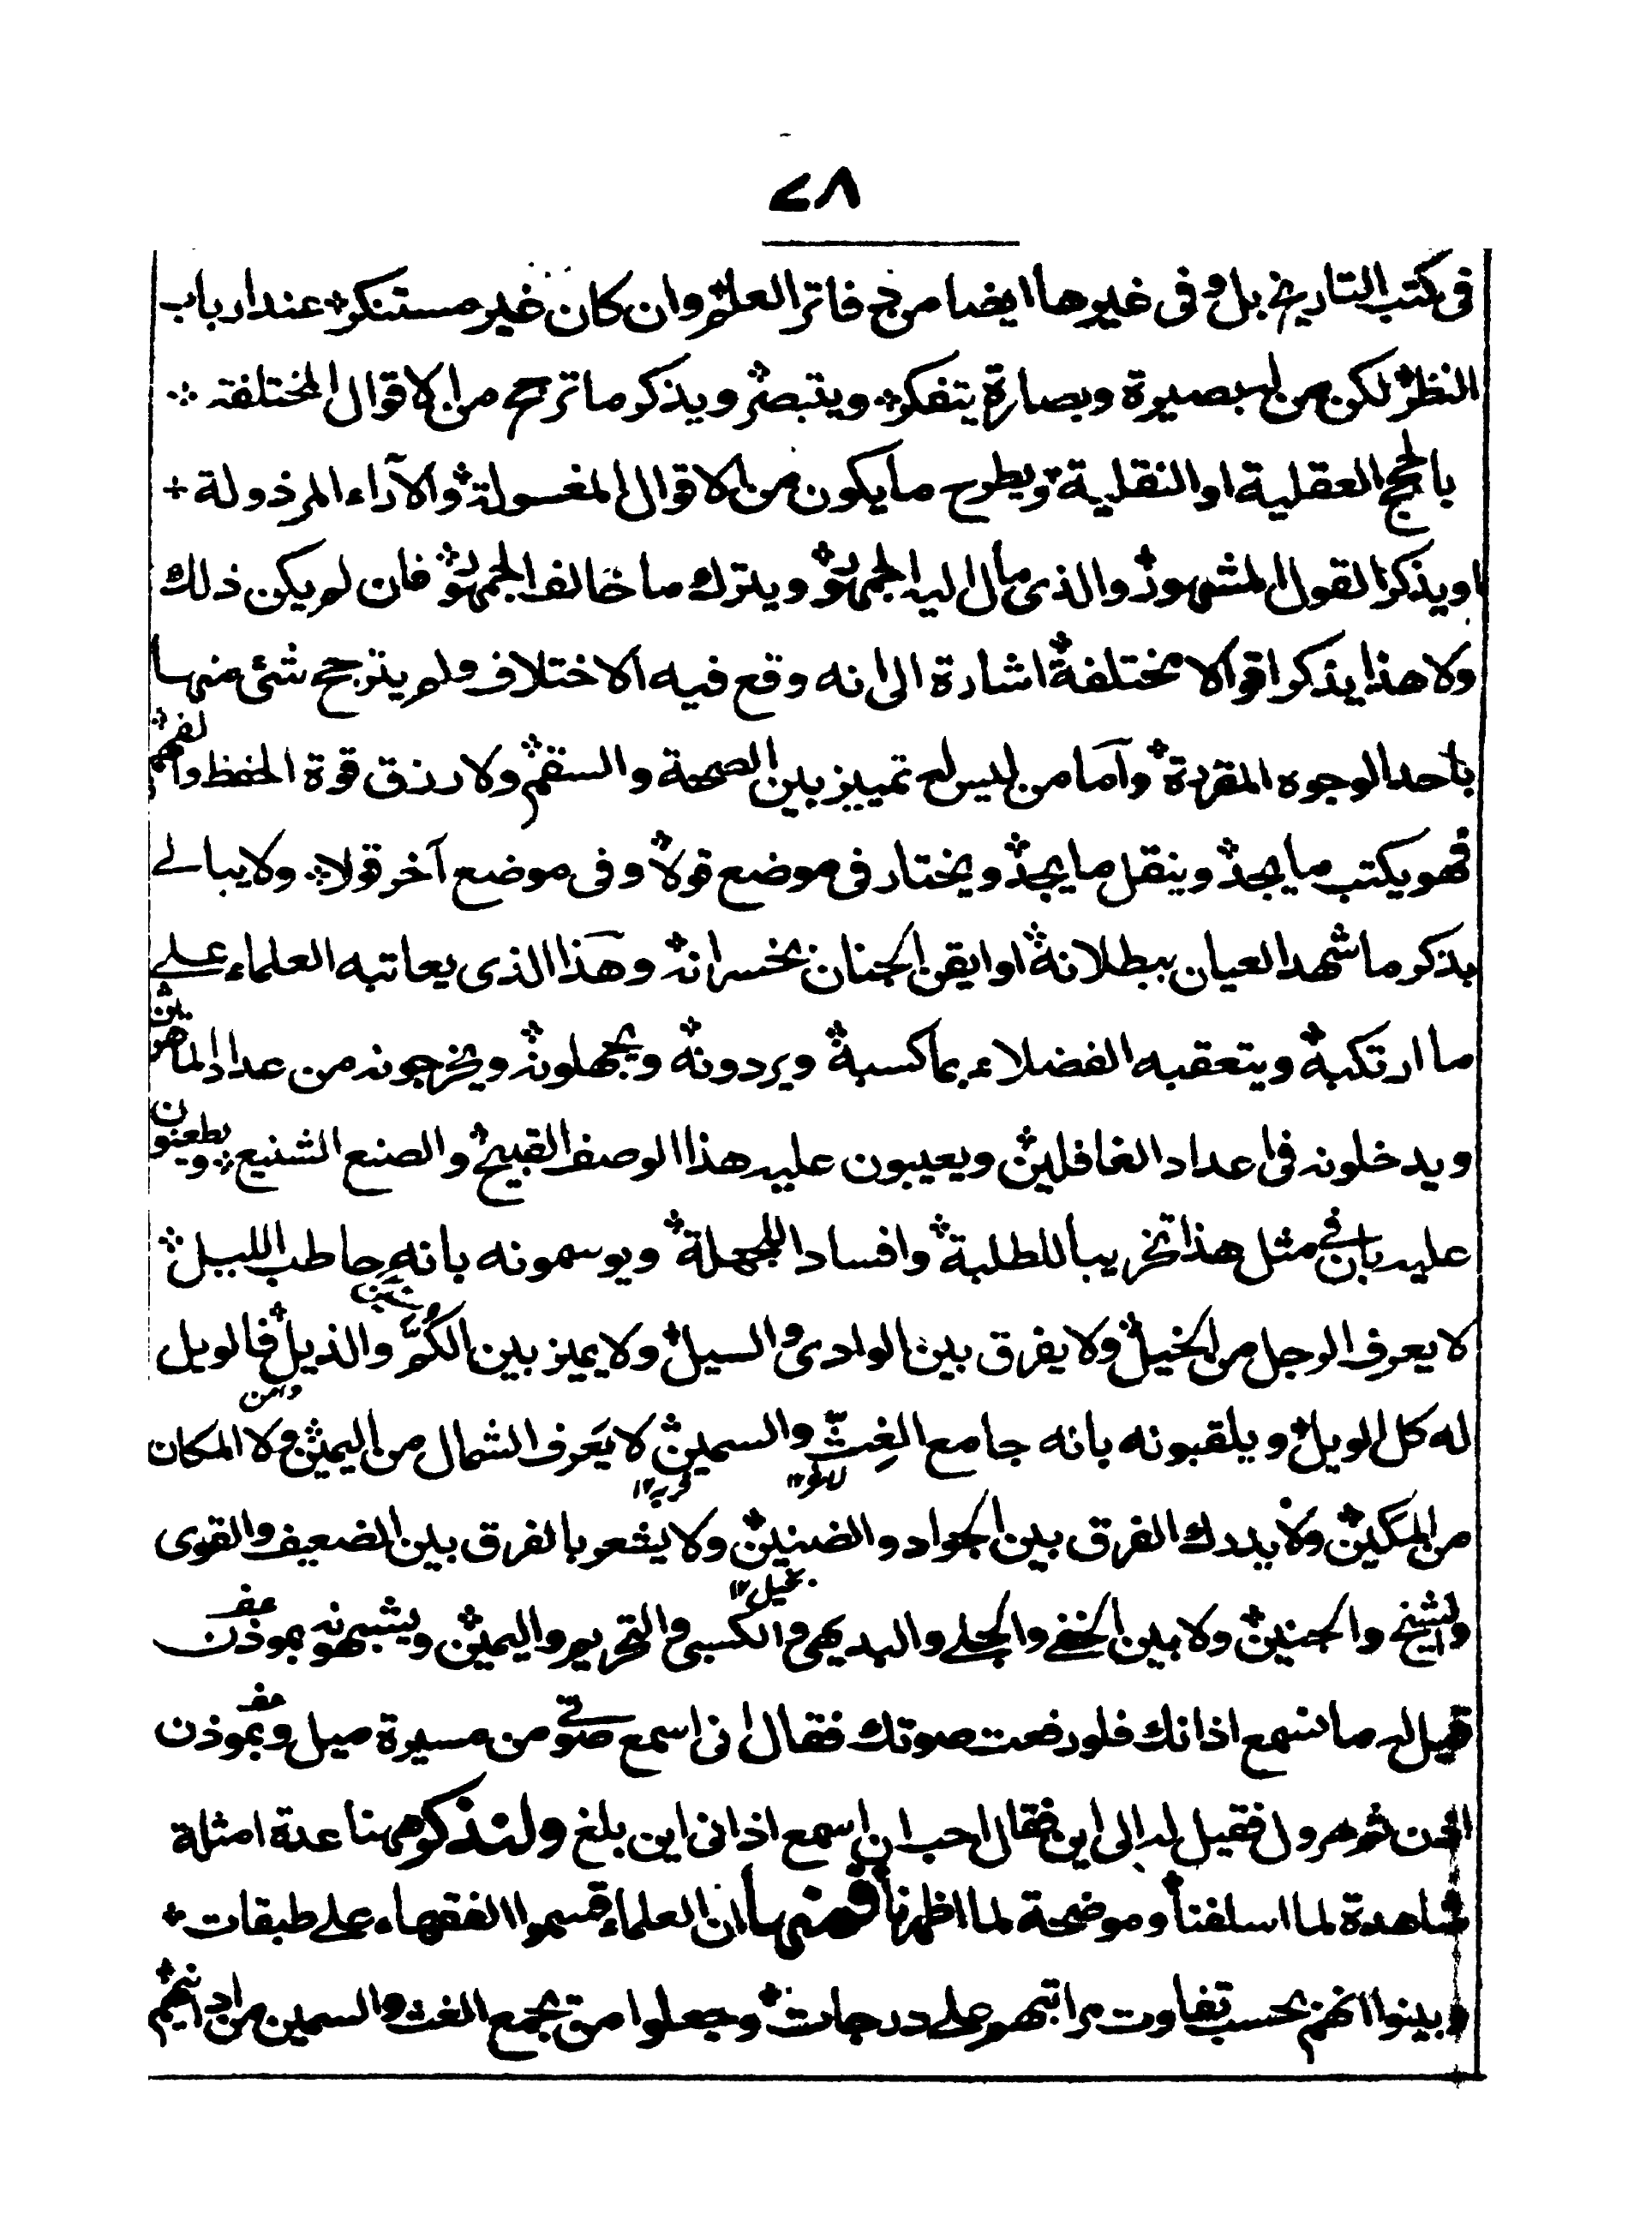 ٢٨
فى كتب التاريخ بل وفى غيرها ايضا من فاتر العلم وان كان غير مستنكر عند ارباب
النظر لكن من له بصيرة وبصارة يتفكر ويتبصر ويذكر ما ترجح من الاقوال المختلفة
بالحجج العقلية او النقلية ويطرح ما يكون من الاقوال المغسولة والآراء المرذولة
او يذكر القول المشهور والذى مال اليه الجمهور ويترك ما خالف الجمهور فان لم يكن ذلك
ولا هذا يذكر اقوالا مختلفة اشارة الى انه وقع فيه الاختلاف ولم يترجح شئ منها
باحد الوجوه المقررة وآما من ليس له تمييز بين الصحة والسقم ولا رزق قوة الحفظ والفهم
فهو يكتب ما يجد وينقل ما يجد ويختار فى موضع قولا وفى موضع آخر قولا ولا يبالے
بذكر ما شهد العيان ببطلانه او ايقن الجنان بخسرانه وهذا الذى يعاتبه العلماء علے
ما ارتكبه ويتعقبه الفضلاء بما كسبه ويردونه ويجهلونه ويخرجونه من عداد الماهرين
ويدخلونه فى اعداد الغافلين ويعيبون عليه هذا الوصف القبيح والصنع الشنيع ويطعنون
عليه بان فى مثل هذا تخريبا للطلبة وافسادا للجهلة ويوسمونه بانه حاطب الليل
لا يعرف الرجل من الخيل ولا يفرق بين الوادى والسيل ولا يميز بين الكُمّ والذيل فالويل
له كل الويل ويلقبونه بانه جامع الغِثّ والسمين لا يَعرف الشمال من اليمين ولا المكان
من المكين ولا يدرك الفرق بين الجواد والضنين ولا يشعر بالفرق بين الضعيف والقوى
بخيل ١٢
والشيخ والجنين ولا بين الخفے والجلے والبديهى والكسبى والتحرير واليمين ويشبهونه بموذن
قيل له ما نسمع اذانك فلو رفعت صوتك فقال انى اسمع صوتے من مسيرة ميل وبموذن
اذن ثم هرول فقيل له الى اين فقال احب ان اسمع اذانى اين بلغ ولنذكر ههنا عدة امثلة
شاهدة لما اسلفنا وموضحة لما اظهرنا فمنها ان العلماء قسموا الفقهاء على طبقات
وبينوا انهم بحسب تفاوت مراتبهم على درجات وجعلوا من يجمع الغث والسمين من ادانيهم